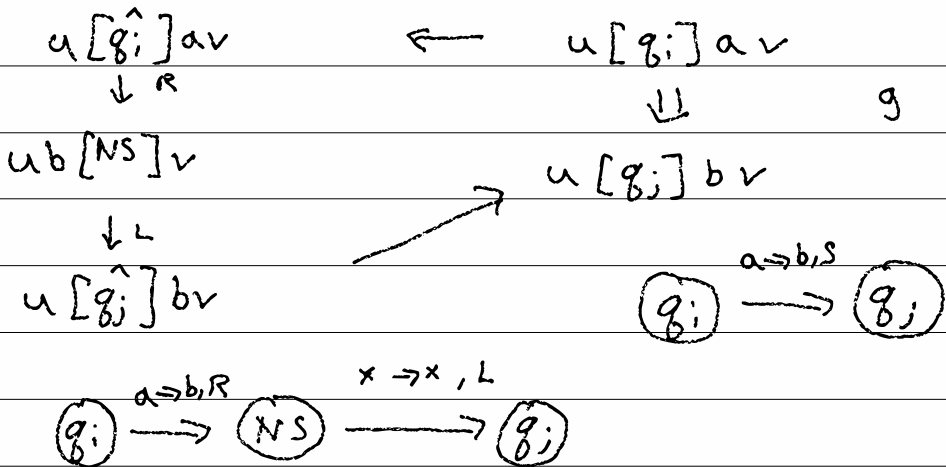 u [q̂i] a v ← u [qi] a v
↓ R ⇓ g
u b [NS] v u [qj] b v
↓ L
u [q̂j] b v
a → b, S
qi → qj
a → b, R x → x, L
qi → NS → qj